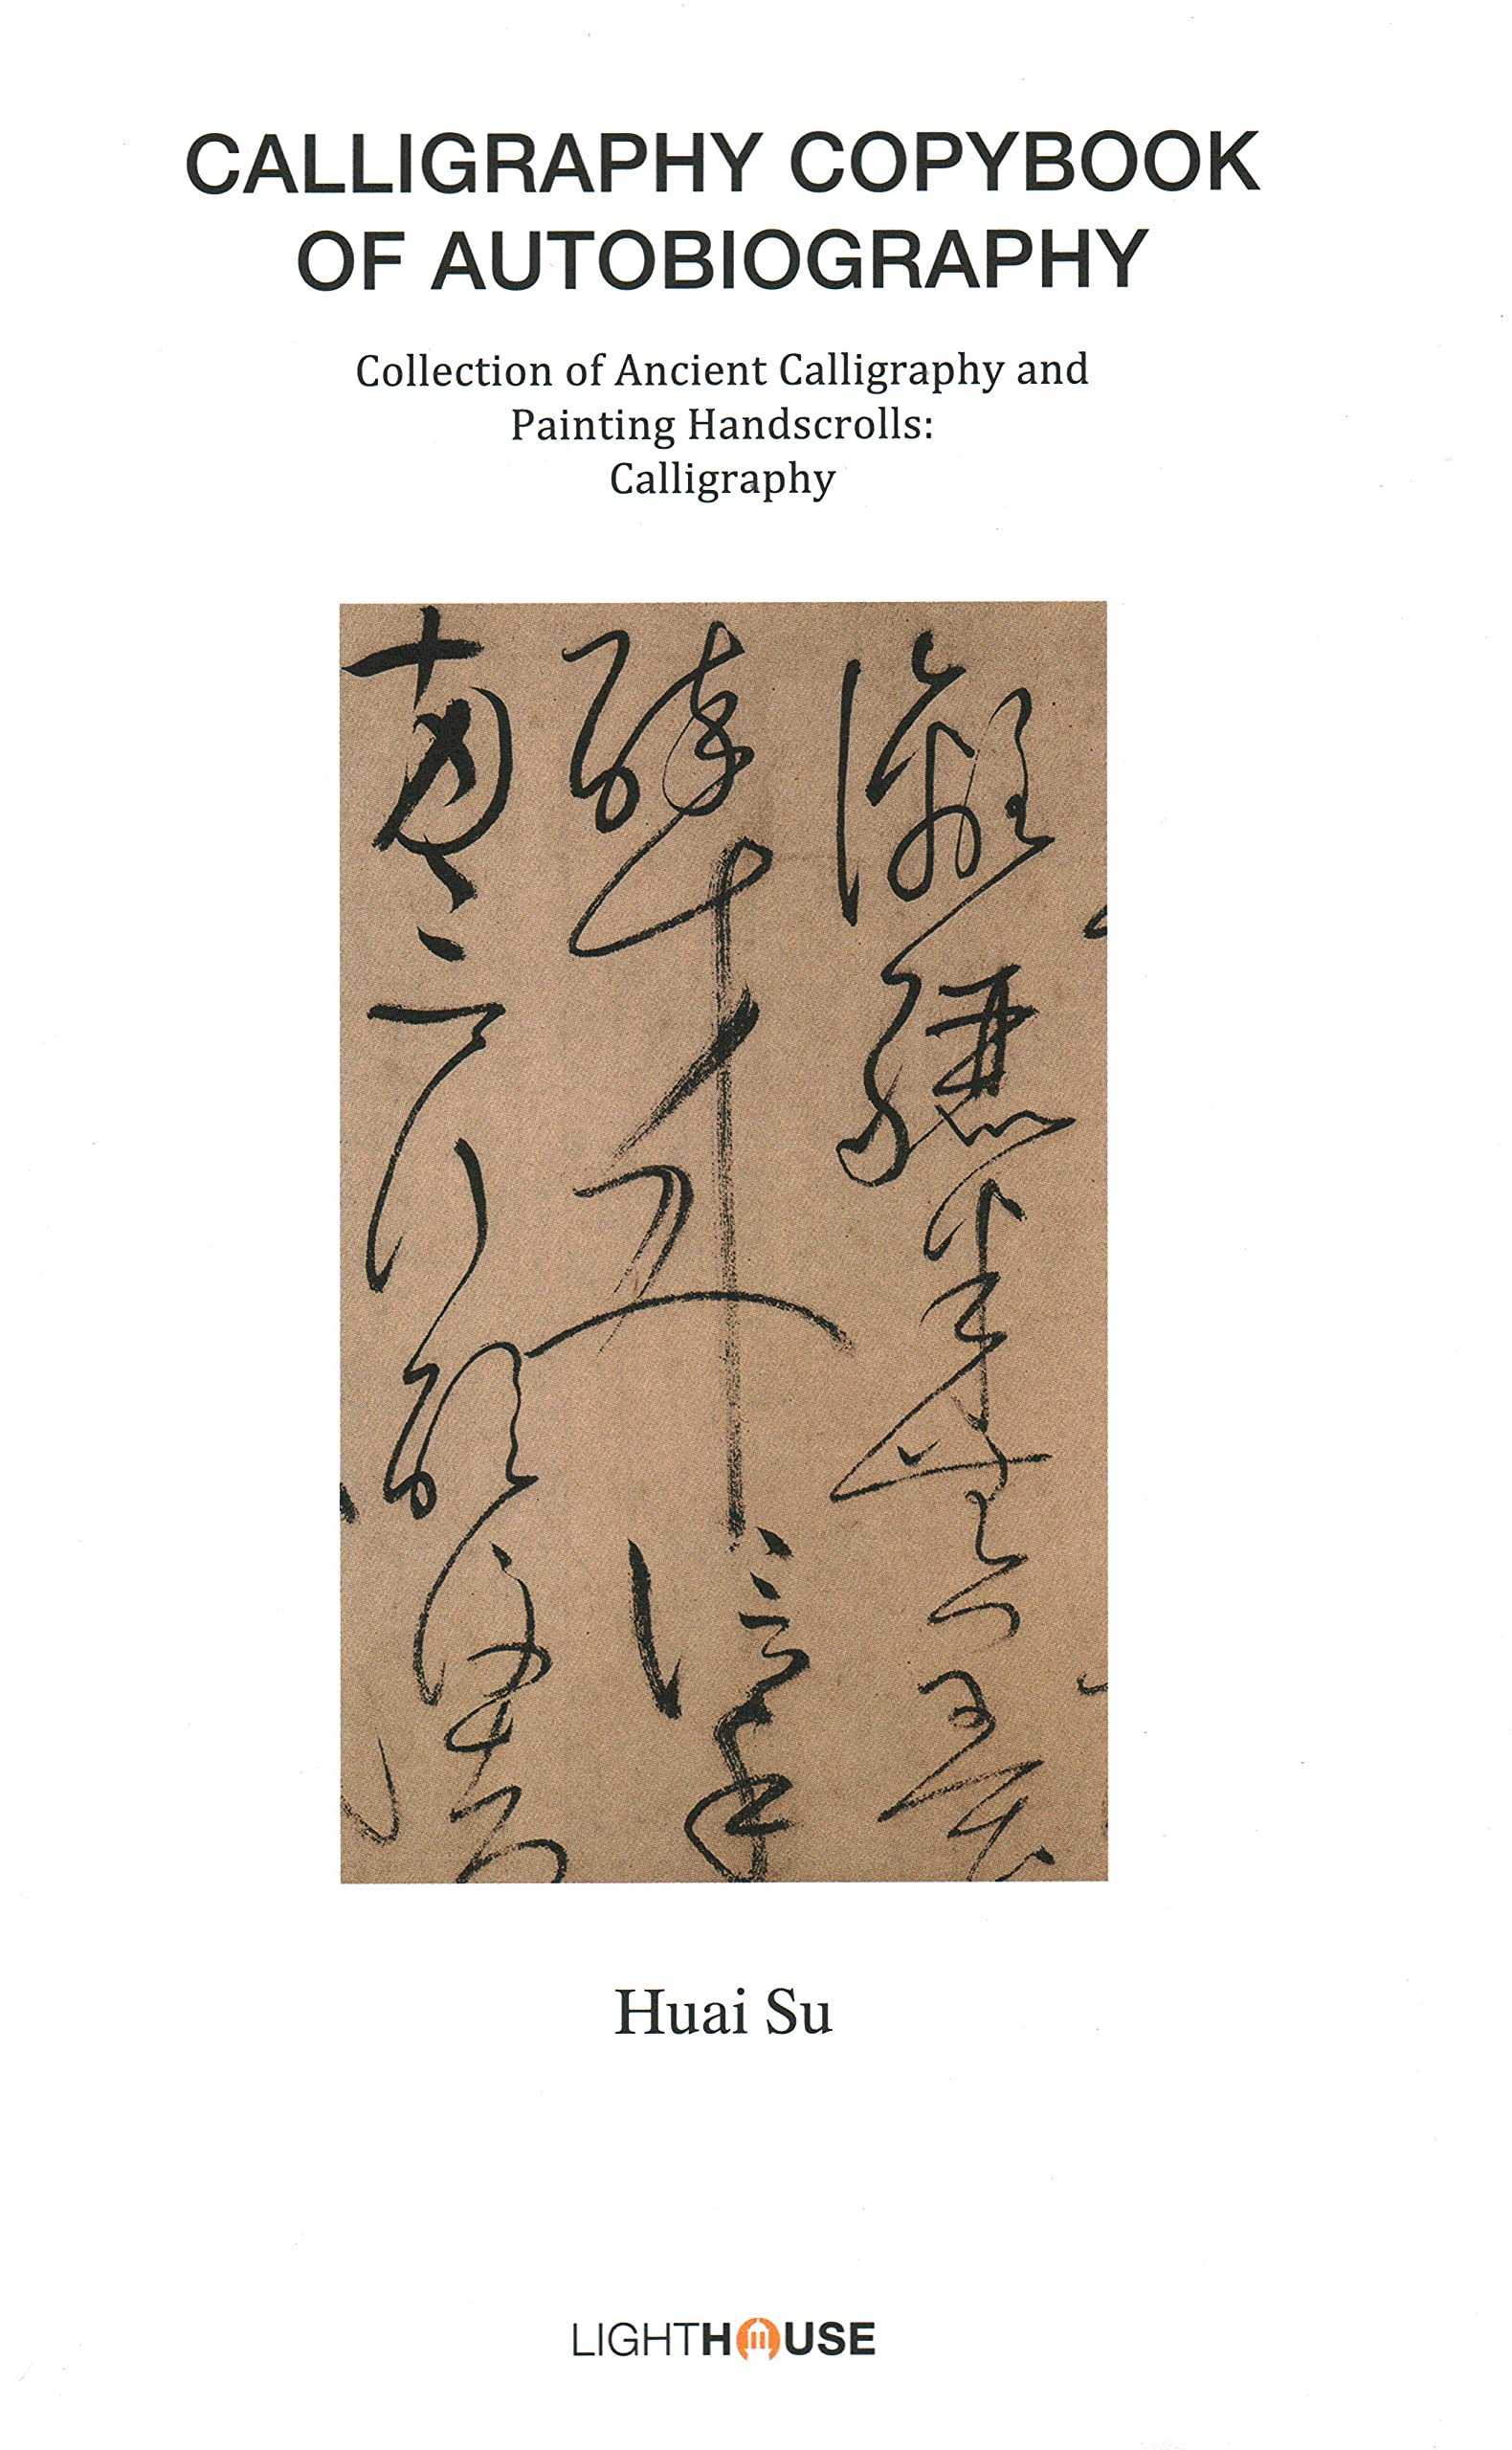 CALLIGRAPHY COPYBOOK
OF AUTOBIOGRAPHY
Collection of Ancient Calligraphy and
Painting Handscrolls:
Calligraphy
灕驪半無墨
醉來信手
兩三行醒後却
Huai Su
LIGHTHOUSE